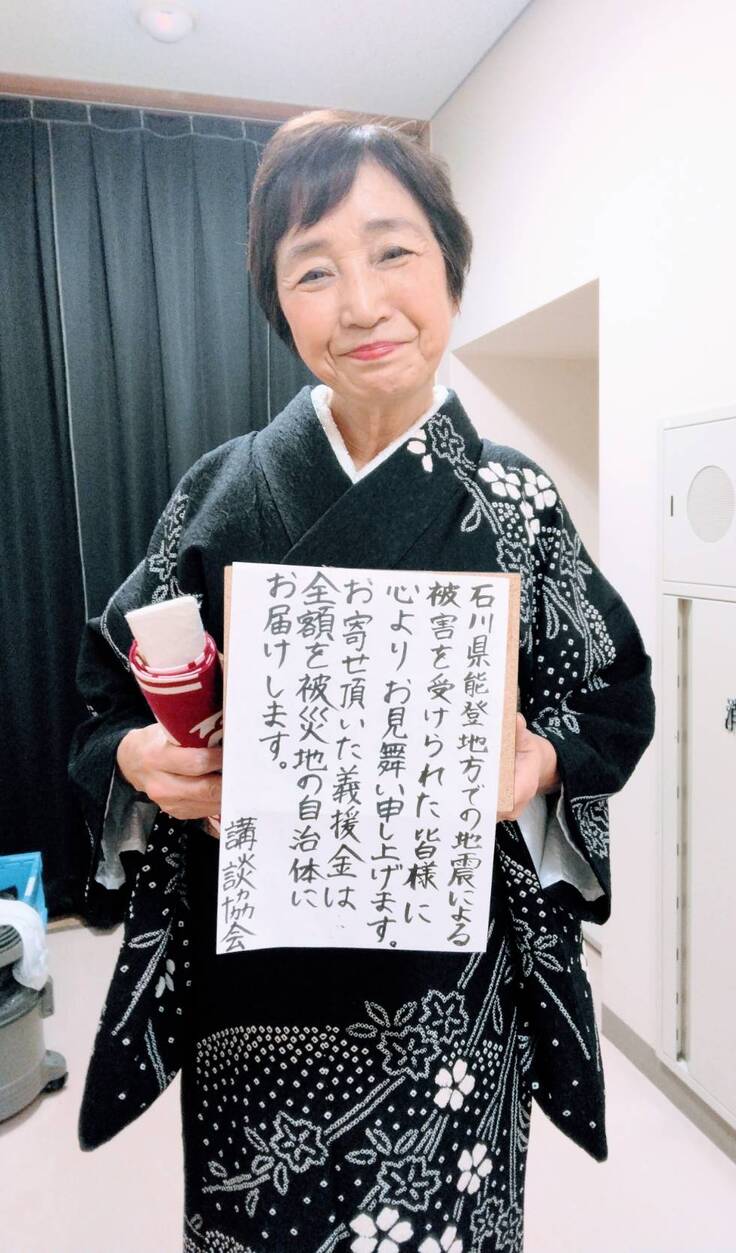 石川県能登地方での地震による
被害を受けられた皆様に
心よりお見舞い申し上げます。
お寄せ頂いた義援金は
全額を被災地の自治体に
お届けします。
講談協会
消